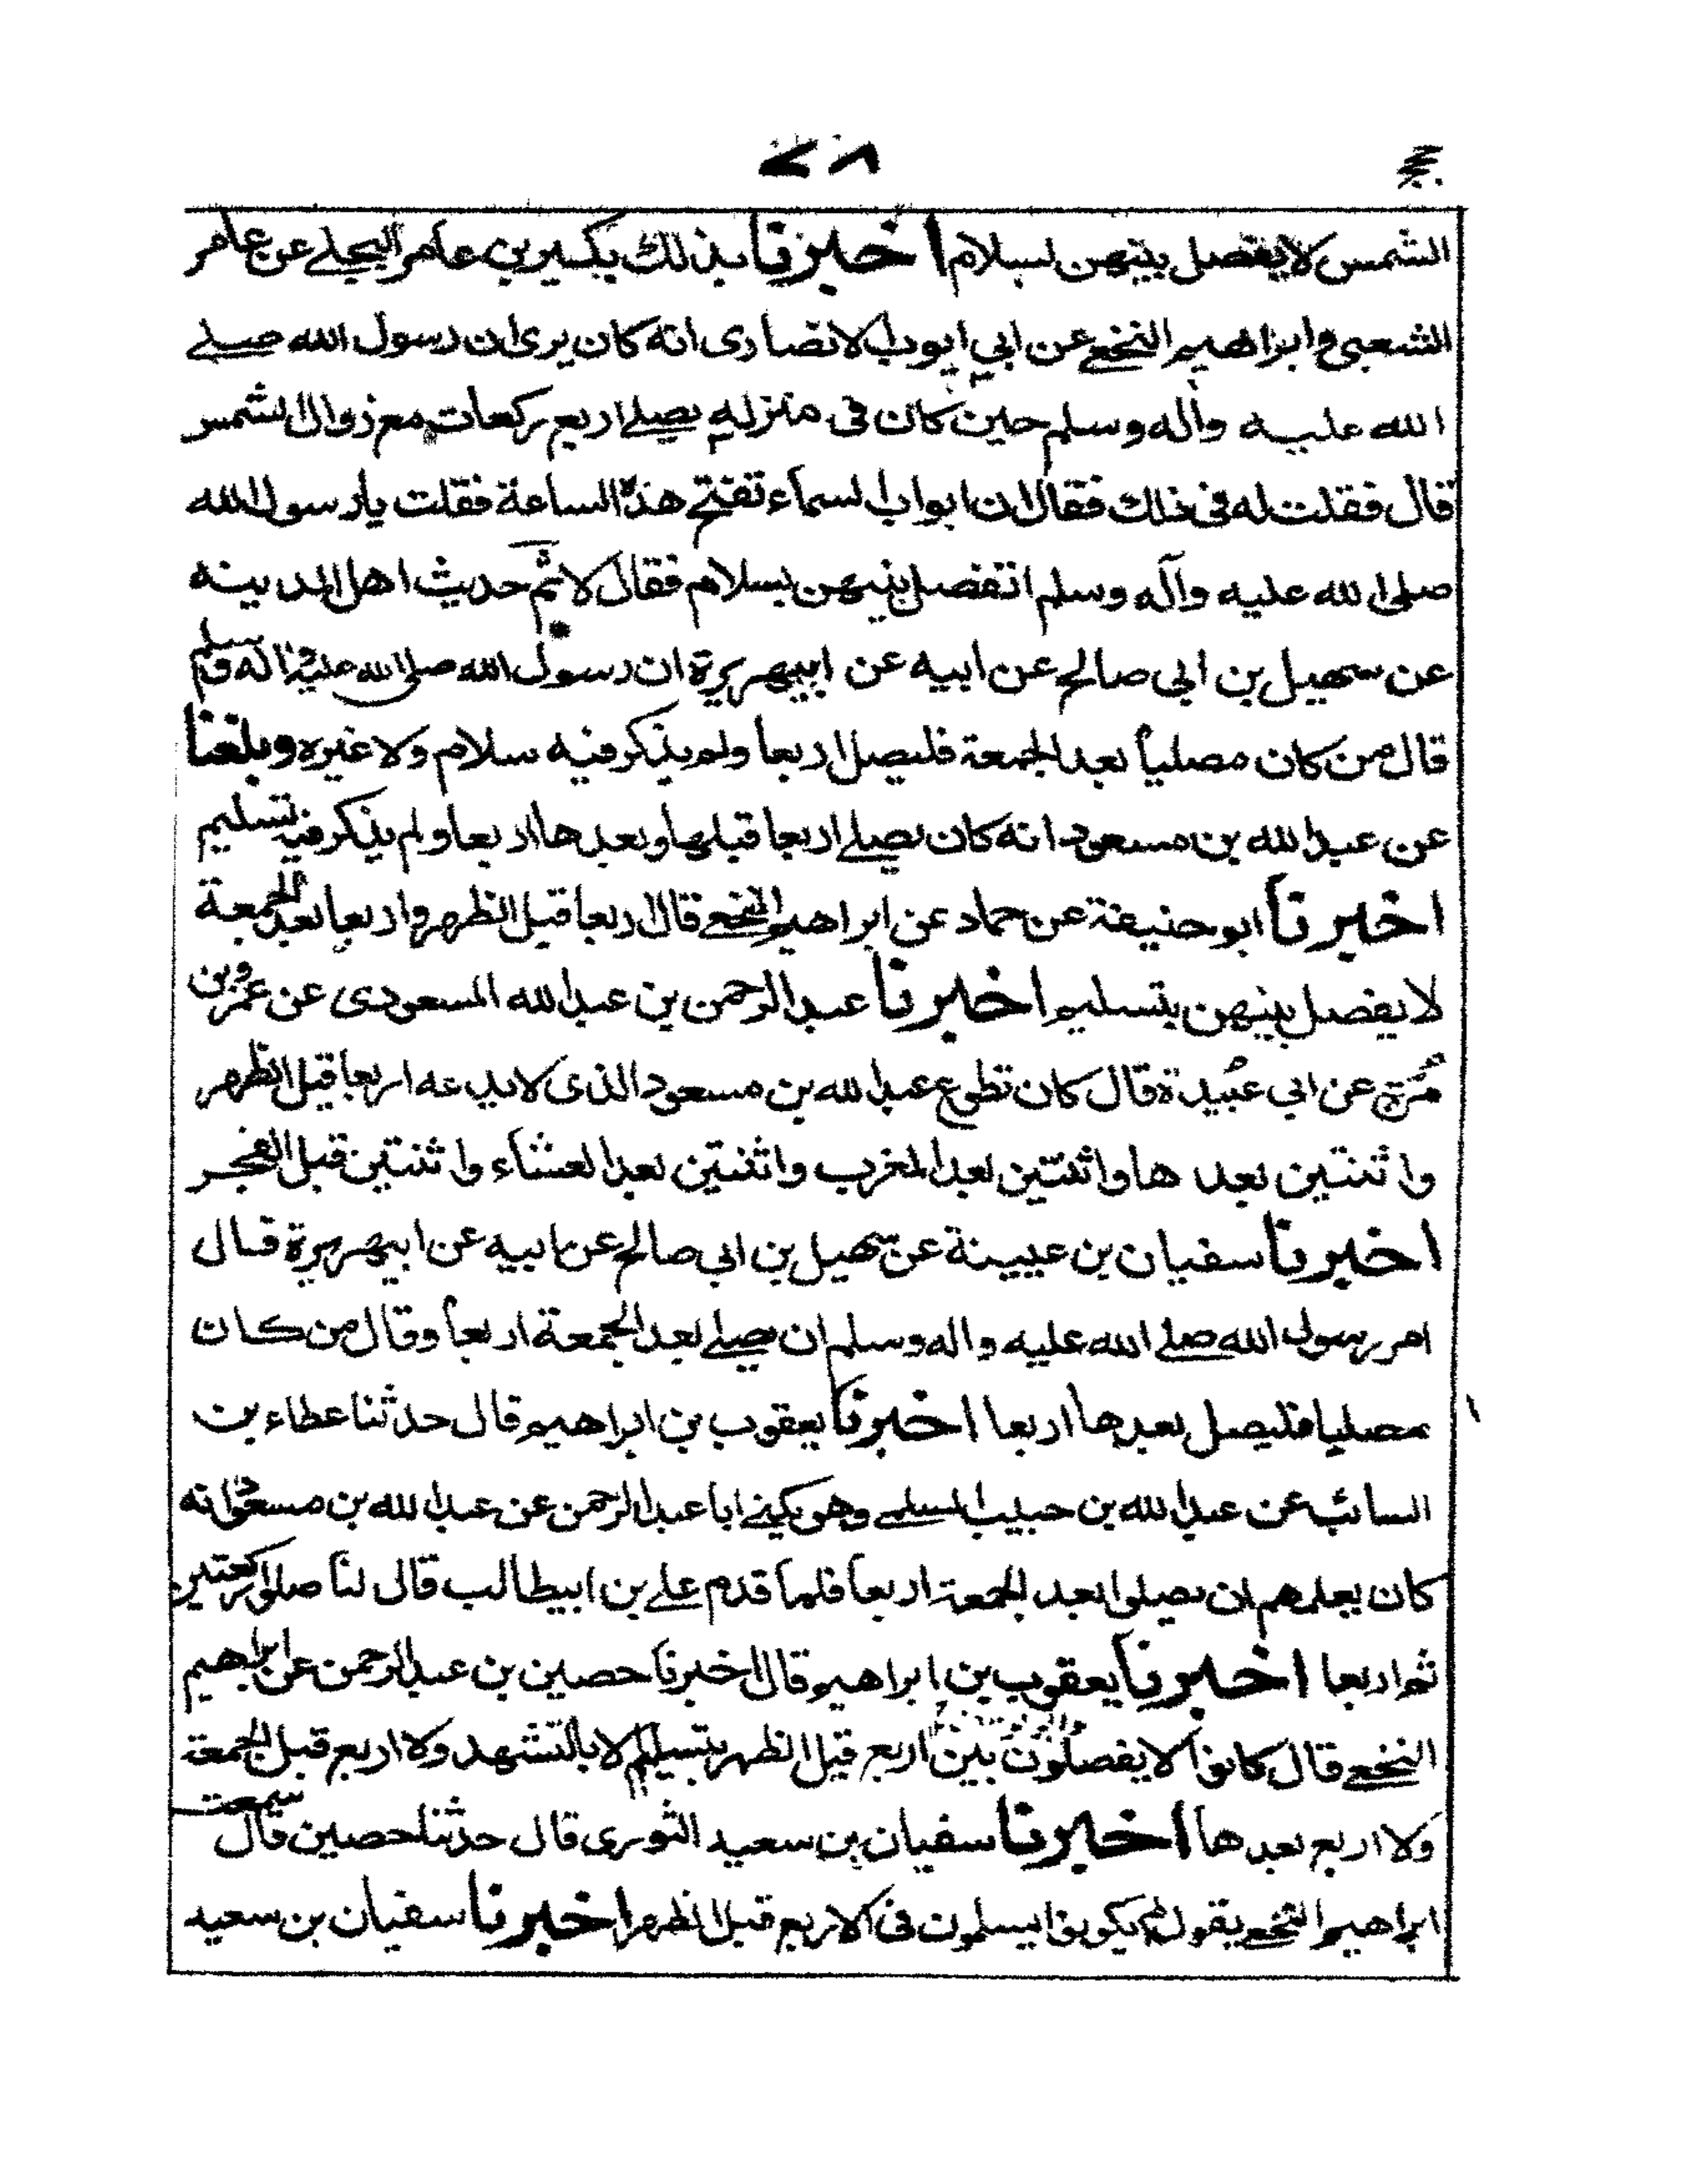 ٧٨
الشمس لا يفصل بينهن بسلام اخبرنا بذلك بكير بن عامر البجلي عن عامر
الشعبي وابراهيم النخعي عن ابي ايوب الانصاري انه كان يرى ان رسول الله صلى
الله عليه وآله وسلم حين كان في منزله يصلي اربع ركعات مع زوال الشمس
قال فقلت له في ذلك فقال ان ابواب السماء تفتح هذه الساعة فقلت يا رسول الله
صلى الله عليه وآله وسلم اتفصل بينهن بسلام فقال لا ثم حديث اهل المدينه
عن سهيل بن ابي صالح عن ابيه عن ابيهريرة ان رسول الله صلى الله عليه واله وسلم
قال من كان مصلياً بعد الجمعة فليصل اربعا ولم يذكر فيه سلام ولا غيره وبلغنا
عن عبد الله بن مسعود انه كان يصلي اربعا قبلها وبعدها اربعا ولم يذكر فيه تسليم
اخبرنا ابو حنيفة عن حماد عن ابراهيم النخعي قال اربعا قبل الظهر واربعا بعد الجمعة
لا يفصل بينهن بتسليم اخبرنا عبد الرحمن بن عبد الله المسعودي عن عمرو بن
مُرّة عن ابي عُبيدة قال كان تطوع عبد الله بن مسعود الذي لا يدعه اربعا قبل الظهر
واثنتين بعد ها واثنتين بعد المغرب واثنتين بعد العشاء واثنتين قبل الفجر
اخبرنا سفيان بن عيينة عن سهيل بن ابي صالح عن ابيه عن ابيهريرة قال
امر رسول الله صلى الله عليه واله وسلم ان يصلي بعد الجمعة اربعاً وقال من كان
مصليا فليصل بعدها اربعا اخبرنا يعقوب بن ابراهيم قال حدثنا عطاء بن
السائب عن عبد الله بن حبيب السلمي وهو يكنى ابا عبد الرحمن عن عبد الله بن مسعود انه
كان يعلمهم ان يصلوا بعد الجمعة اربعا فلما قدم علي بن ابيطالب قال لنا صلوا ركعتين
ثم اربعا اخبرنا يعقوب بن ابراهيم قال اخبرنا حصين بن عبد الرحمن عن ابراهيم
النخعي قال كانوا لا يفصلون بين اربع قبل الظهر بتسليم الا بالتشهد ولا اربع قبل الجمعة
ولا اربع بعدها اخبرنا سفيان بن سعيد الثوري قال حدثنا حصين قال سمعت
ابراهيم النخعي يقول لم يكونوا يسلمون في الاربع قبل الظهر اخبرنا سفيان بن سعيد